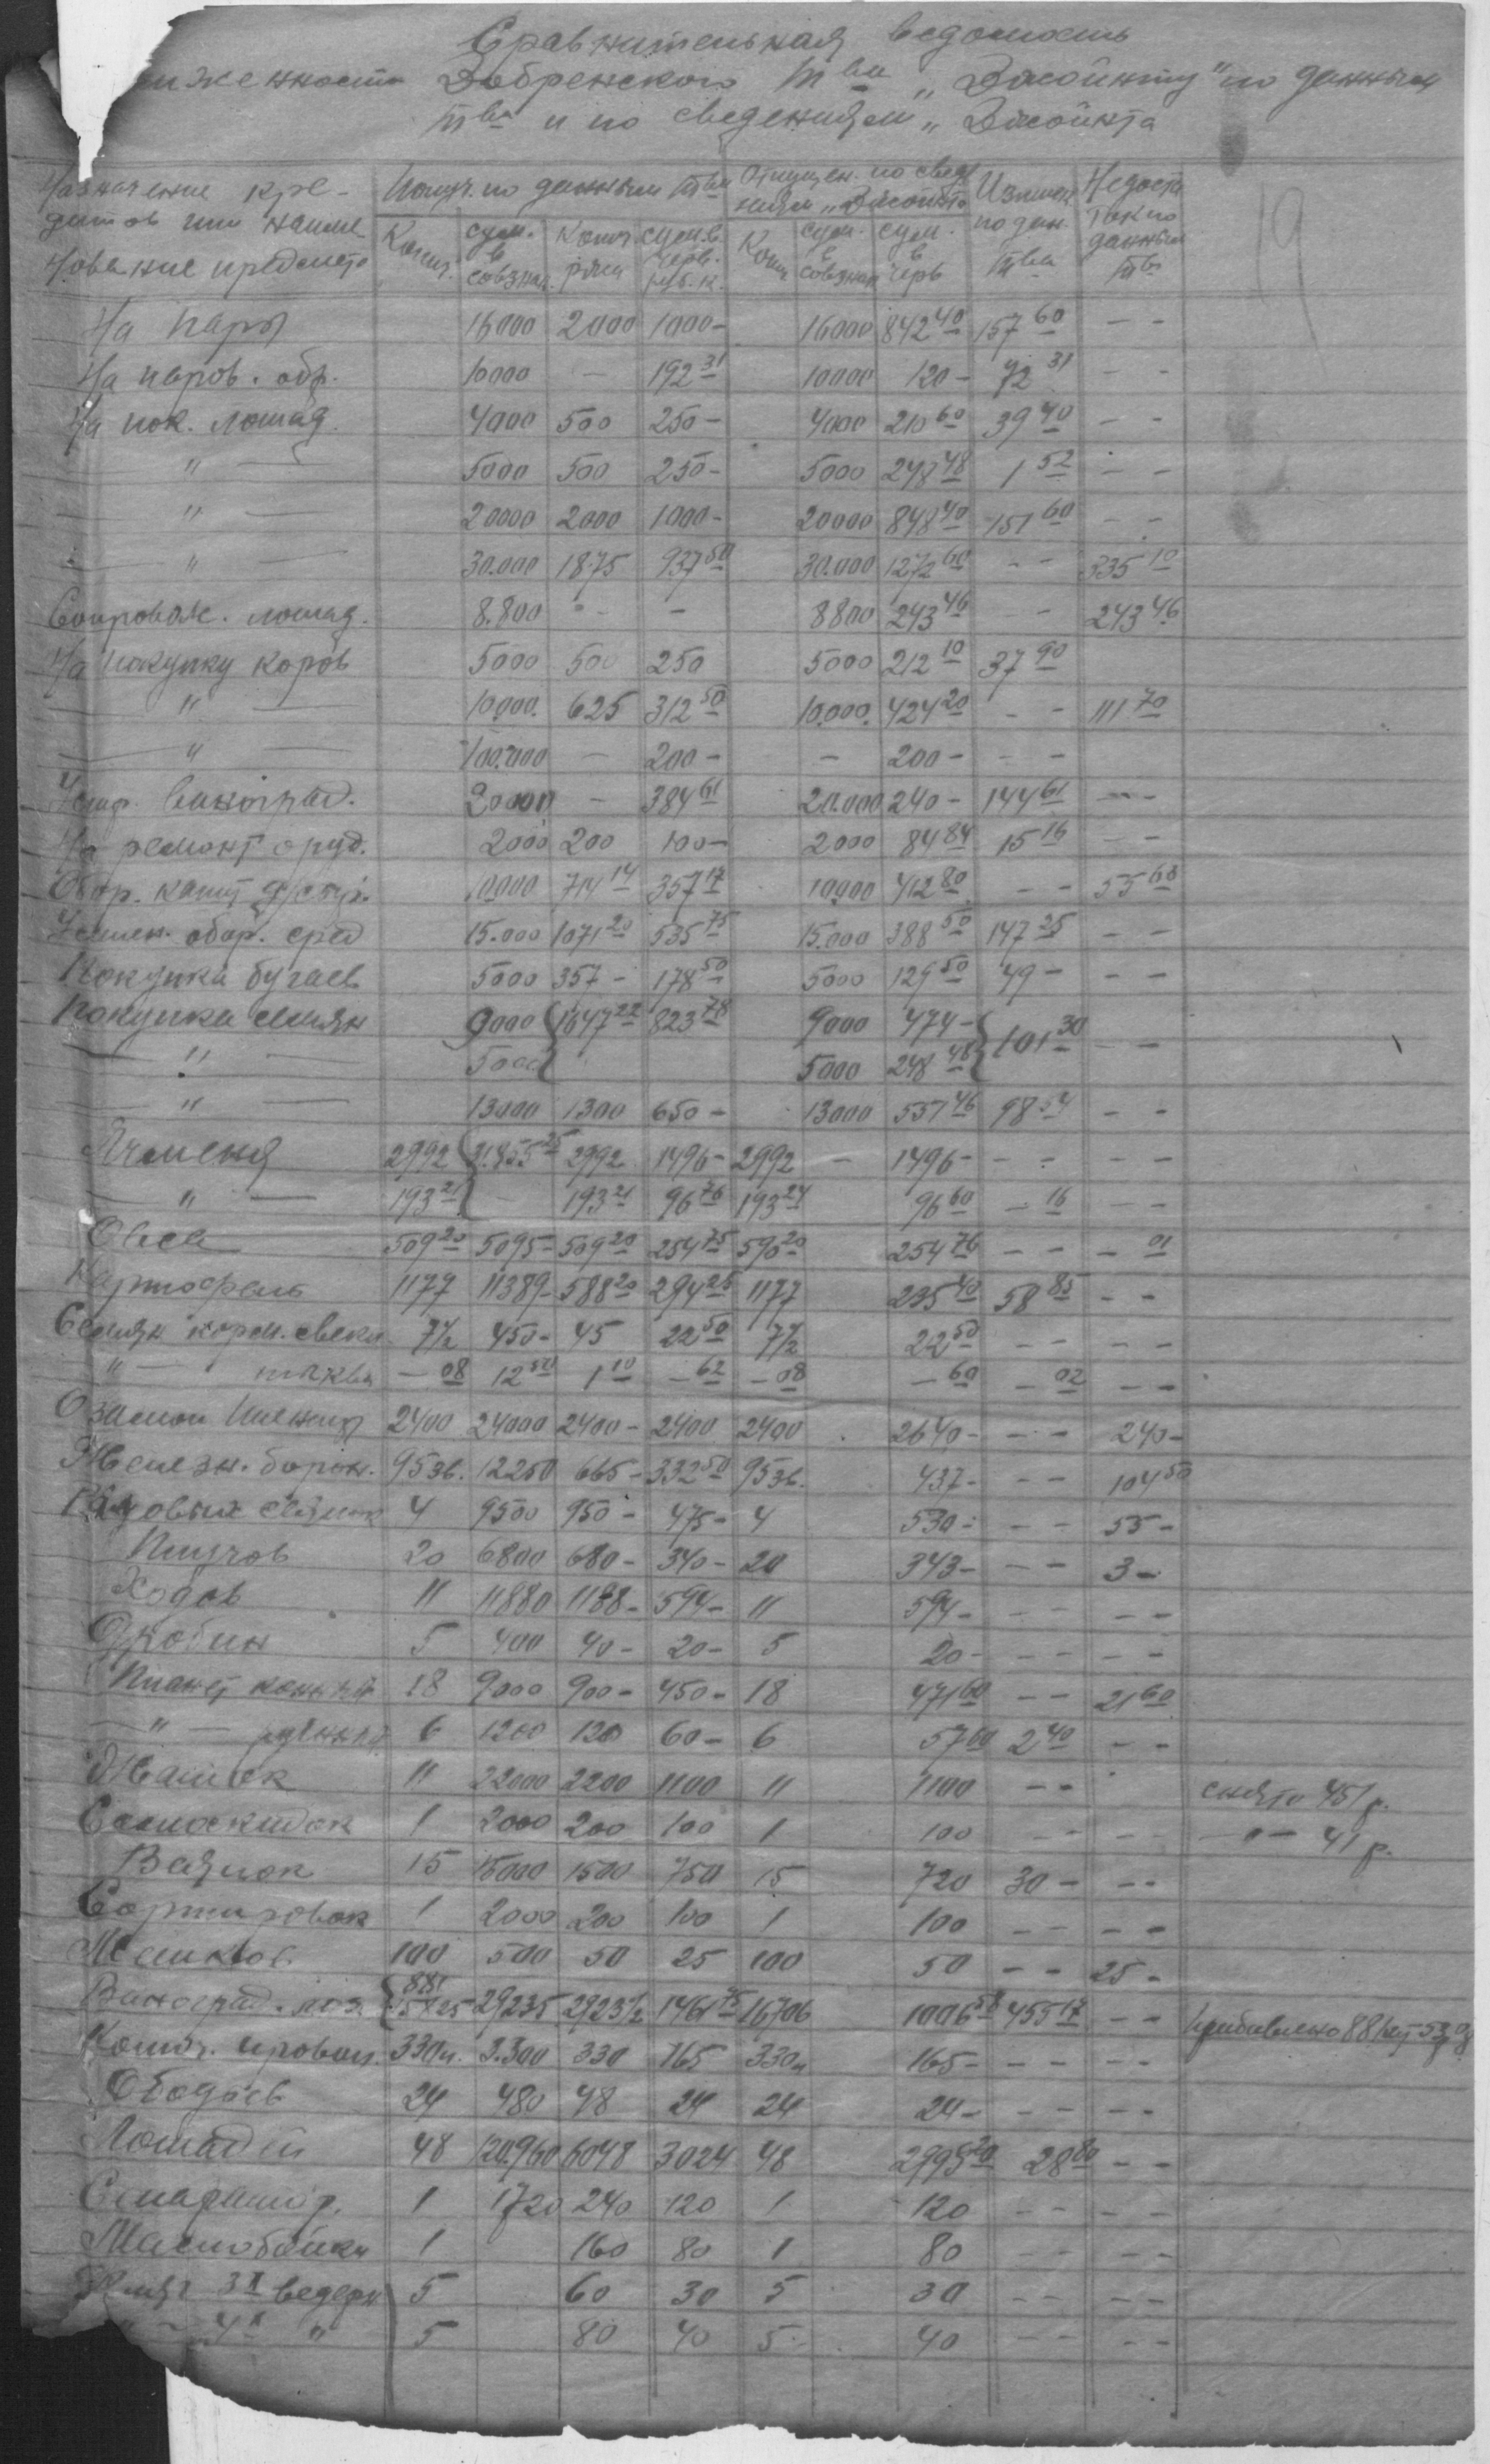 Сравнительная ведомость
Добренского Тва „Джойнту" по данным
тва и по сведениям „Джойнта
Назначение кре- Получ. по данным тва Отпущен. по сведе Излишек Недоста
дитов или наиме- ниям „Джойнта по дан. ток по
нование предмета Колич. сум. в совзнак. сум. в черв. руб. к. Колич. сум. в совзнак сум. в черв тва данным тва
19
На пары 16000 2000 1000- 16000 842 40 157 60 - -
На паров. обр. 10000 - 192 31 10000 120- 72 31 - -
На пок. лошад. 4000 500 250- 4000 210 60 39 40 - -
" 5000 500 250- 5000 248 48 1 52 - -
" 20000 2000 1000- 20000 848 40 151 60 - -
" 30.000 1875 937 50 30.000 1272 60 - - 335 10
Сопровож. лошад. 8.800 - - 8800 243 46 - - 243 46
На покупку коров 5000 500 250 5000 212 10 37 90
" 10.000. 625 312 50 10.000. 424 20 - - 111 70
" 100.000 - 200- - 200- - -
виноград. 20000 - 384 61 20.000 240- 144 61 - -
На ремонт оруд. 2000 200 100- 2000 84 84 15 16 - -
Обор. 10000 714 14 357 17 10.000 412 80 - - 55 60
обор. сред 15.000 1071 20 535 75 15.000 388 50 147 25 - -
Покупка бугаев 5000 357- 178 50 5000 129 50 49- - -
Покупка семян 9000 1647 22 823 78 9000 474- 101 30 - -
" 5000 5000 248 48
" 13000 1300 650- 13000 551 46 98 54 - -
Ячменя 2992 2992 1496- 2992 - 1496- - - - -
" 193 21 - 193 21 96 76 193 24 96 60 - 16 - -
Овса 509 20 5095- 509 20 254 75 590 20 254 76 - - - 01
Картофель 1177 11389- 588 20 294 25 1177 235 40 58 85 - -
Семян корм. свекл. 7½ 450- 45 22 50 7½ 22 50 - - - -
" - тыквы - 08 12 50 1 10 - 62 - 08 - 60 - 02 - -
Озимой пшениц 2400 24000 2400- 2400 2400 2640- - - 240-
Железн. борон. 95 зв. 12250 665- 332 50 95 зв. 437- - - 104 50
Рядовых сеялок 4 9500 950- 475- 4 530- - - 55-
Плугов 20 6800 680- 340- 20 343- - - 3-
Ходов 11 11880 1188- 594- 11 594- - - - -
Дробин 5 400 40- 20- 5 20- - - - -
Планет конный 18 9000 900- 450- 18 471 60 - - 21 60
" - ручных 6 1200 120 60- 6 57 60 2 40 - -
Жаток 11 22000 2200 1100 11 1100 - - снято 451 р.
Самокидок 1 2000 200 100 1 100 - - - - - " - 41 р.
Веялок 15 15000 1500 750 15 720 30- - -
Сортировок 1 2000 200 100 1 100 - - - -
Мешков 100 500 50 25 100 50 - - 25-
Виноград. лоз. 881 29235 2923½ 1461 75 16706 1006 58 455 17 - - прибавлено 88
Колюч. провол. 330 п. 3.300 330 165 330 п 165- - - - -
Ободьев 24 480 48 24 24 24- - - - -
Лошадей 48 120.960 6048 3024 48 2795 20 28 80 - -
Сепаратор. 1 1720 240 120 1 120 - - - -
Маслобойки 1 160 80 1 80 - - - -
3х ведерн 5 60 30 5 30 - - - -
" 4х " 5 80 40 5 40 - - - -